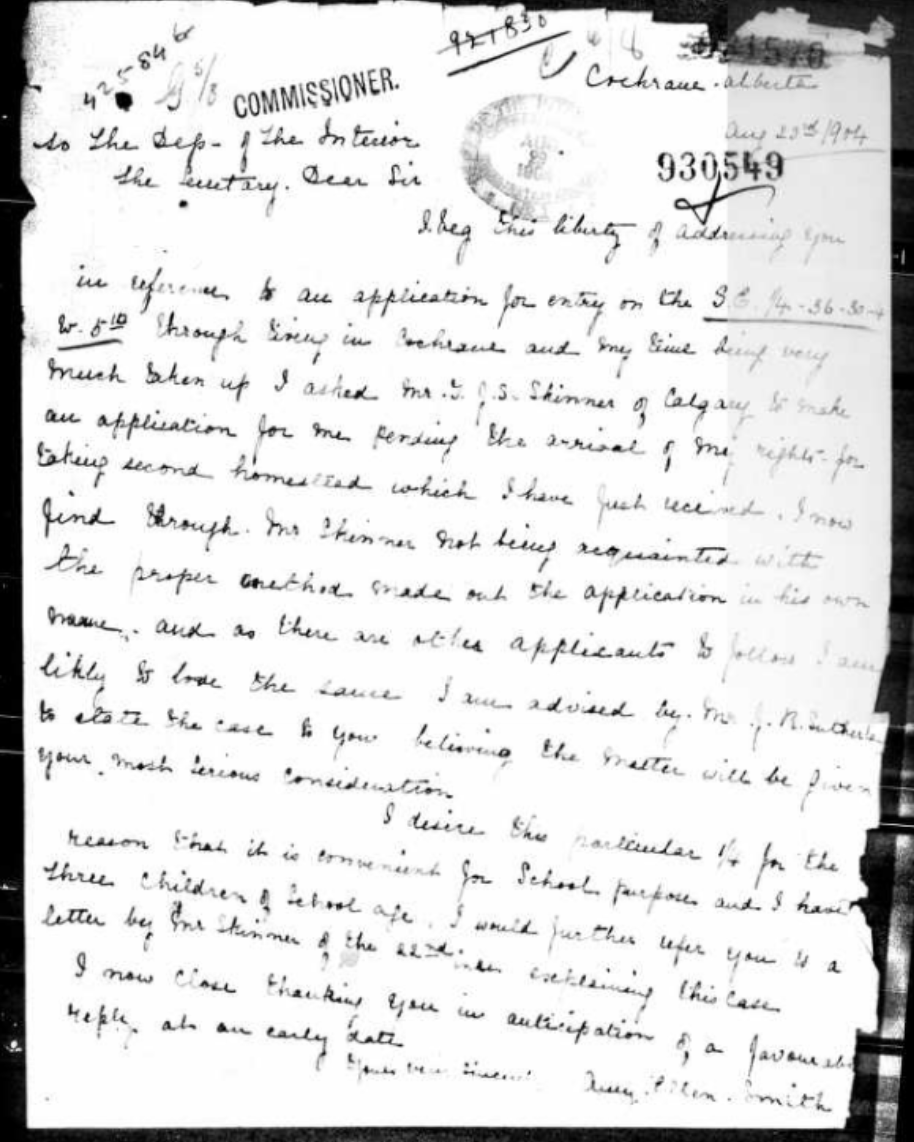 927830
425846
COMMISSIONER.
Cochrane. Alberta
Aug 23rd /904
To The Dep- of The Interior
930549
The Secretary. Dear Sir
I beg this liberty of addressing you
in reference to an application for entry on the S.E. 1/4-36-30-4
W. 5th through living in Cochrane and my time being very
much taken up I asked Mr. T. J. S. Skinner of Calgary to make
an application for me pending the arrival of my rights- for
taking second homestead which I have just received. I now
find through. Mr Skinner not being acquainted with
the proper method made out the application in his own
name. and as there are other applicants to follow I am
likly to lose the same I am advised by. Mr J. R. Sutherla
to state the case to you believing the matter will be given
your most serious consideration
I desire this particular 1/4 for the
reason that it is convenient for School purposes and I have
three Children of School age. I would further refer you to a
letter by Mr Skinner of the 22nd explaining this case
I now close thanking you in anticipation of a favourable
reply at an early date
Yours very sincerely Smith